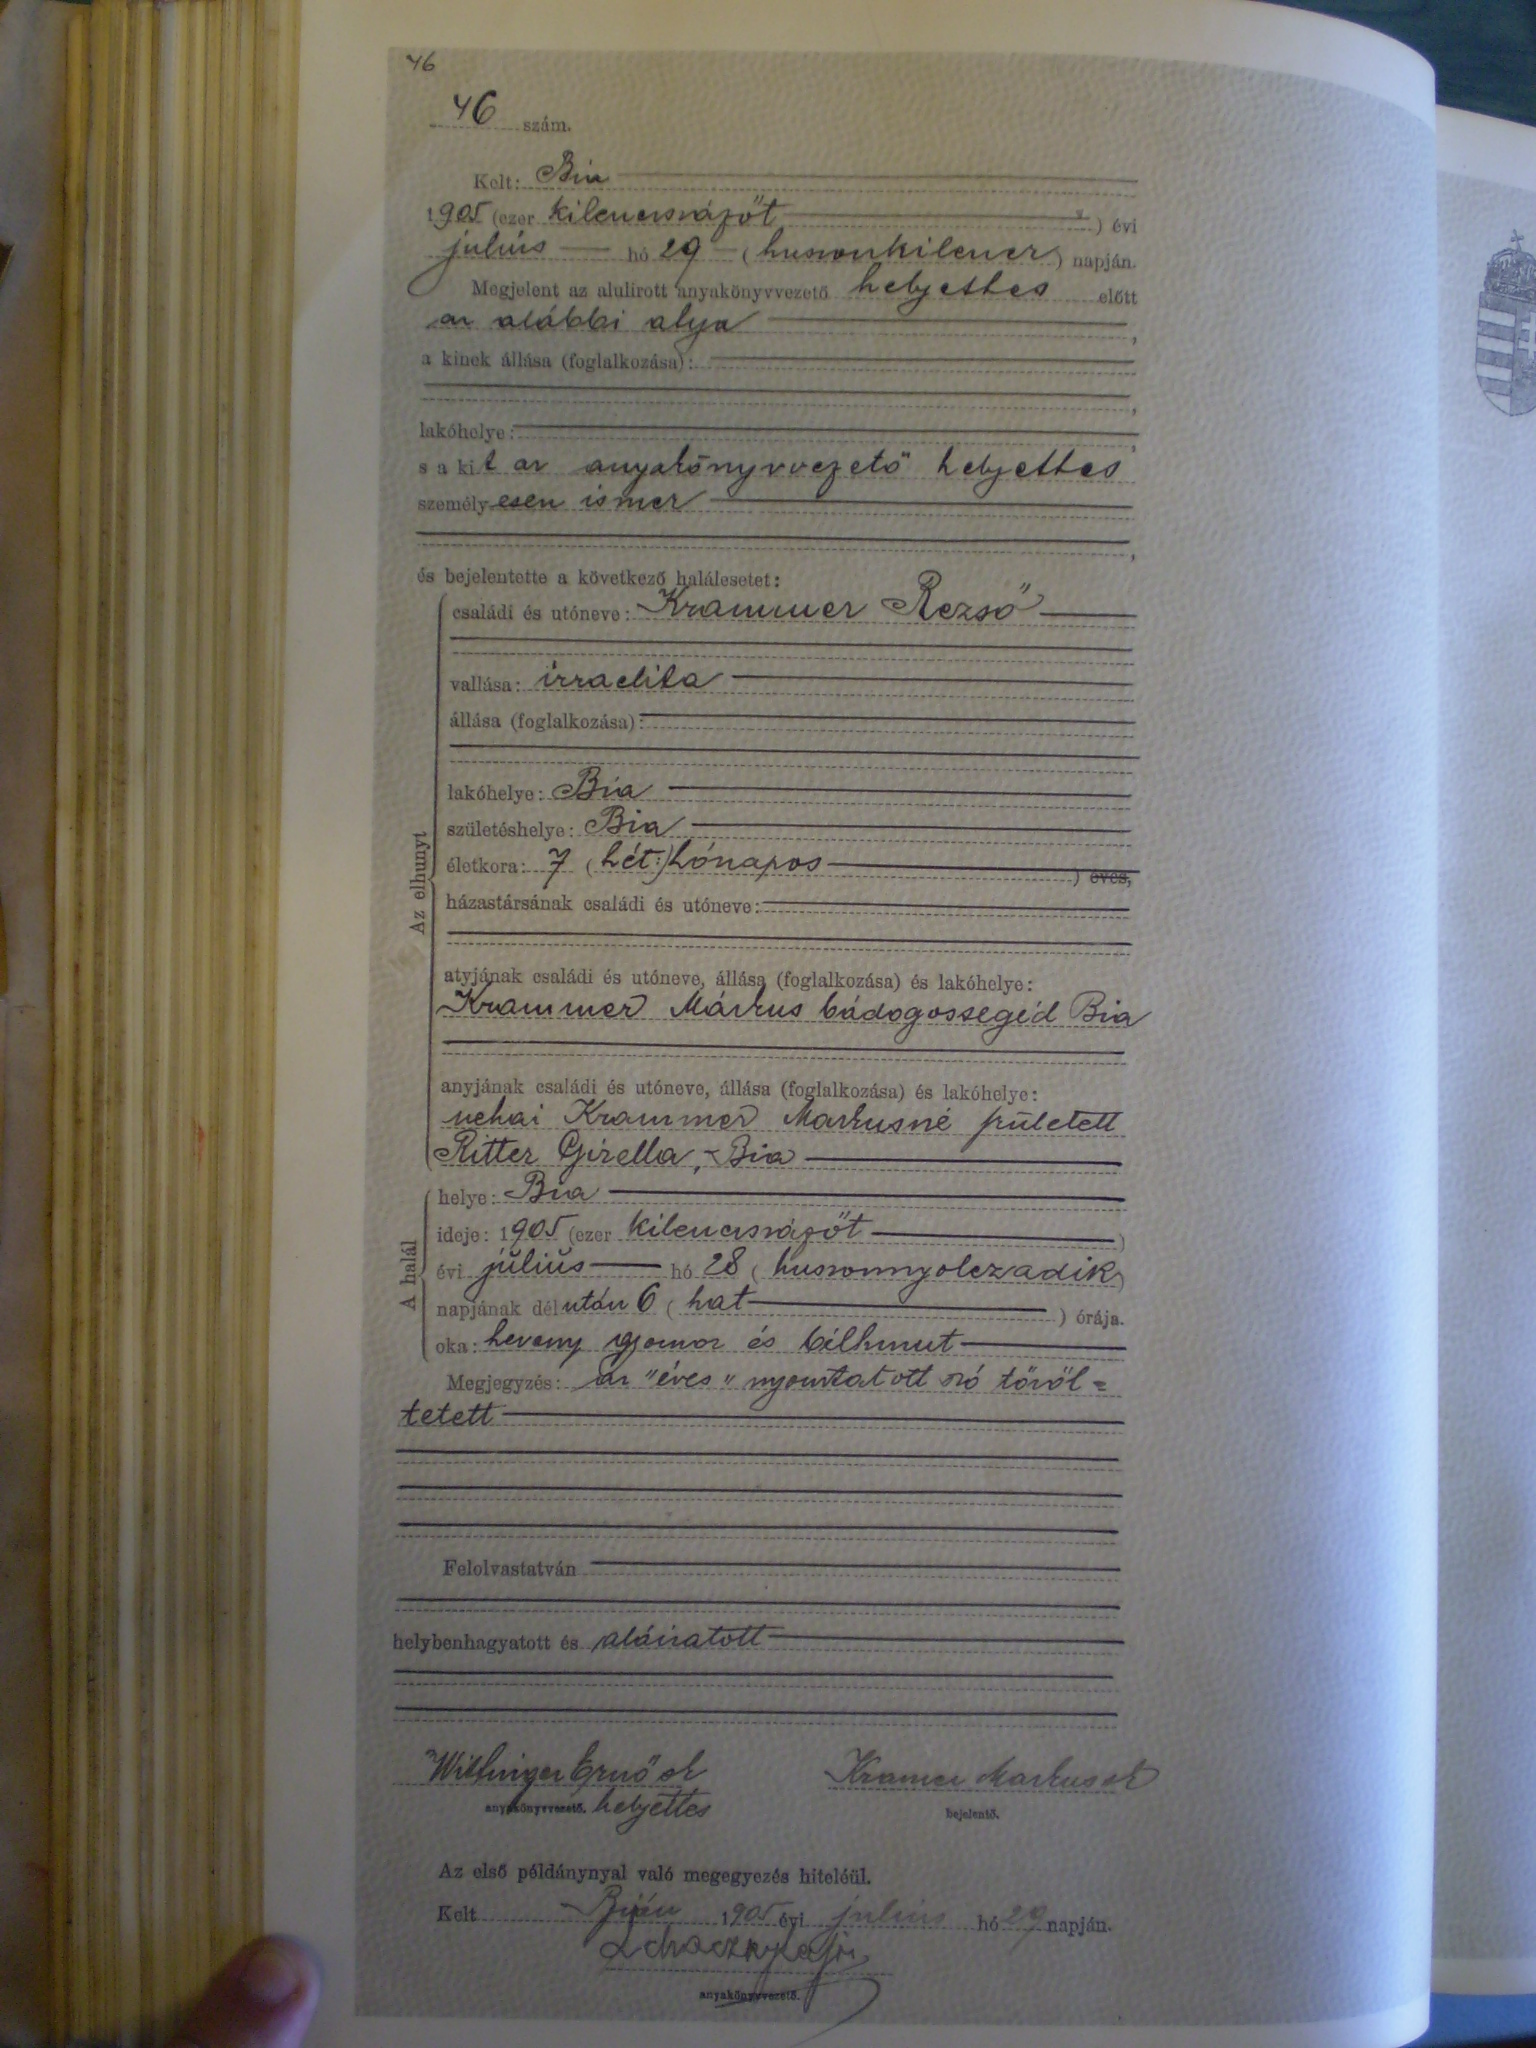 46
46 szám.
Kelt: Bia
1905 (ezer kilenczszázöt) évi
július hó 29 (huszonkilencz) napján.
Megjelent az alulirott anyakönyvvezető helyettes előtt
az alábbi atya,
a kinek állása (foglalkozása):
lakóhelye:
s a kit az anyakönyvvezető helyettes
személyesen ismer
és bejelentette a következő halálesetet:
Az elhunyt
családi és utóneve: Krammer Rezső
vallása: izraelita
állása (foglalkozása):
lakóhelye: Bia
születéshelye: Bia
életkora: 7 (hét:) hónapos ) éves,
házastársának családi és utóneve:
atyjának családi és utóneve, állása (foglalkozása) és lakóhelye:
Krammer Márkus bádogossegéd Bia
anyjának családi és utóneve, állása (foglalkozása) és lakóhelye:
néhai Krammer Markusné született
Ritter Gizella, - Bia
A halál
helye: Bia
ideje: 1905 (ezer kilenczszázöt)
évi július hó 28 (huszonnyolczadik)
napjának délután 6 (hat) órája.
oka: heveny gyomor és bélhurut
Megjegyzés: az "éves" nyomtatott szó töröl=
tetett
Felolvastatván
helybenhagyatott és aláiratott
Ernő sk Kramer Markus sk
anyakönyvvezető. helyettes bejelentő.
Az első példánynyal való megegyezés hiteléül.
Kelt Bián 1905 évi július hó 29 napján.
anyakönyvvezető.